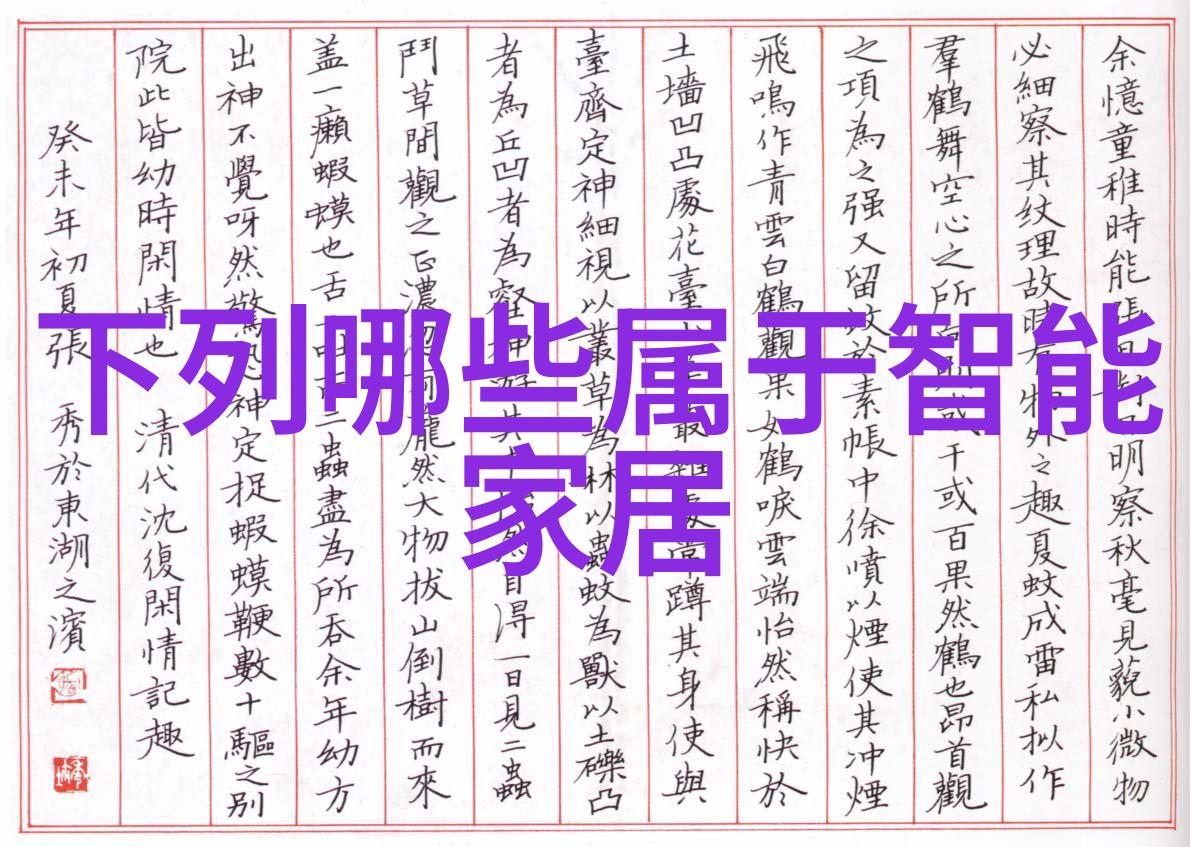 下列哪些属于智能
家居
余憶童稚時能張目對日明察秋毫見藐小微物
必細察其纹理故時有物外之趣夏蚊成雷私拟作
羣鶴舞空心之所向則或千或百果然鶴也昂首觀
之項為之强又留蚊於素帳中徐噴以煙使其冲煙
飛鳴作青雲白鶴觀果如鶴唳雲端怡然稱快於
土墻凹凸處花臺小草叢雜處常蹲其身使與
臺齊定神細視以叢草為林以蟲蚊為獸以土礫凸
者為丘凹者為壑神游其中怡然自得一日見二蟲
鬥草間觀之正濃忽有龐然大物拔山倒樹而來
盖一癩蝦蟆也舌一吐而二蟲盡為所吞余年幼方
出神不覺呀然驚恐神定捉蝦蟆鞭數十驅之别
院此皆幼時閑情也 清代沈復閑情記趣
癸未年初夏張 秀於東湖之濱